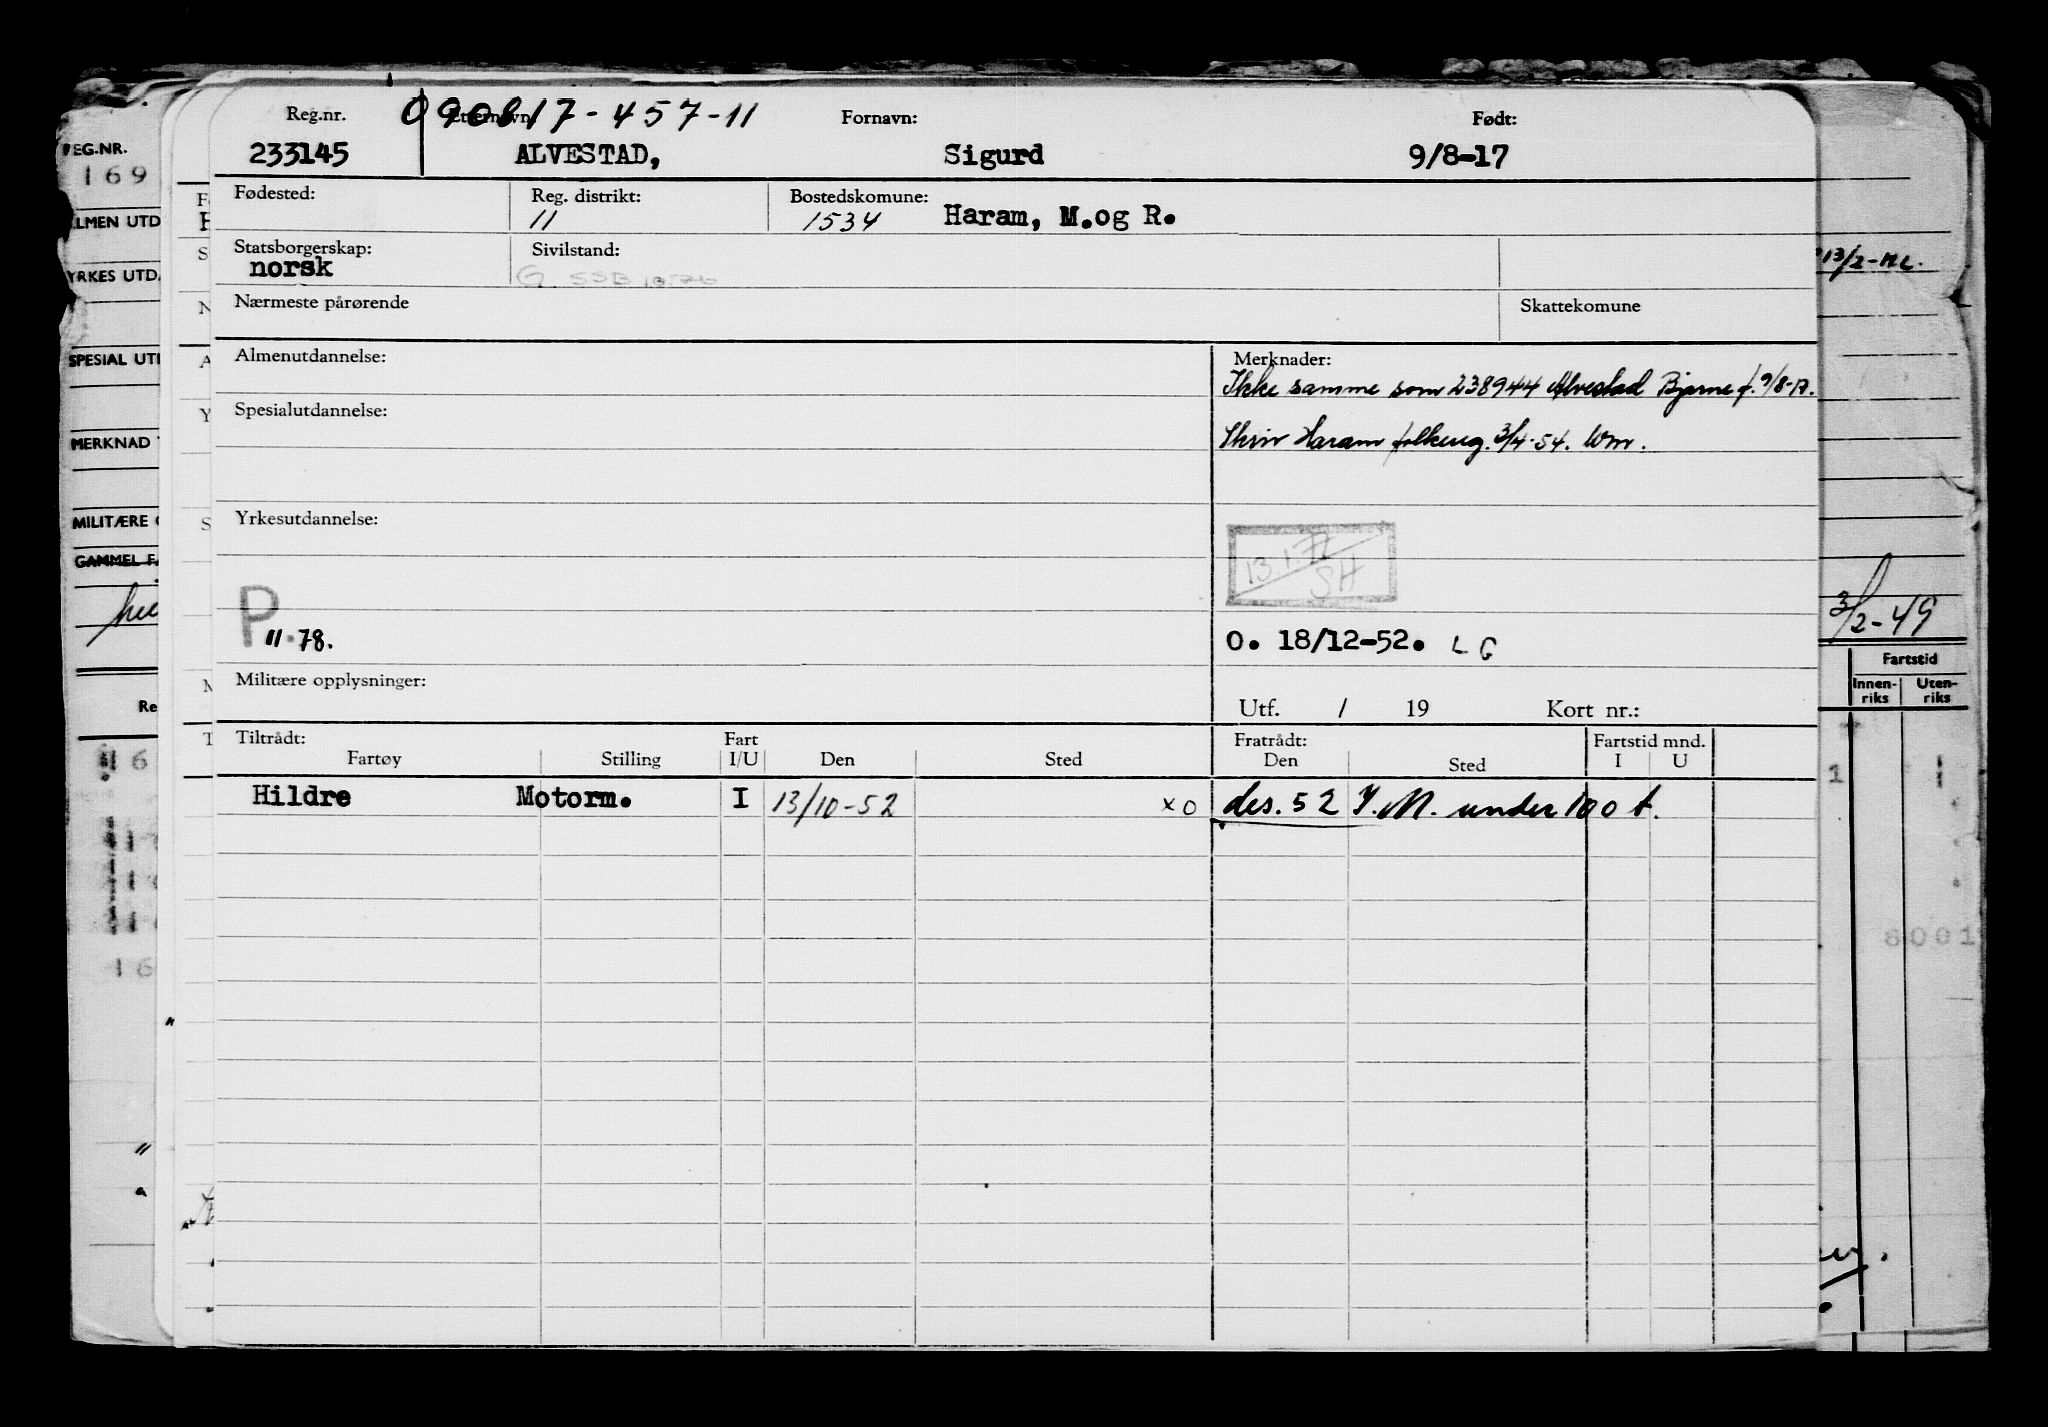 Reg.nr. 090817-457-11 Etternavn: Fornavn: Født:
233145 ALVESTAD, Sigurd 9/8-17
Fødested: Reg. distrikt: Bostedskomune:
11 1534 Haram, M.og R.
Statsborgerskap: Sivilstand:
norsk G. SSB
Nærmeste pårørende Skattekomune
Almenutdannelse: Merknader:
Ikke samme som 238944 Alvestad Bjarne f. 9/8-17.
Spesialutdannelse:
Skriv Haram folkereg. 3/4-54. Wm.
Yrkesutdannelse:
13.1.77
SH
P
11.78.
O. 18/12-52. LG
Militære opplysninger:
Utf. / 19 Kort nr.:
Tiltrådt: Fart Fratrådt: Fartstid mnd.
Fartøy Stilling I/U Den Sted Den Sted I U
Hildre Motorm. I 13/10-52 xo des. 52 I.M. under 100 t.
EG.NR.
169
LMEN UTD
YRKES UTDA
SPESIAL UTD
MERKNAD
MILITÆRE
GAMMEL FA
Re
13/2-
3/2-49
Fartstid
Innen-
riks
Uten-
riks
1 1
8001